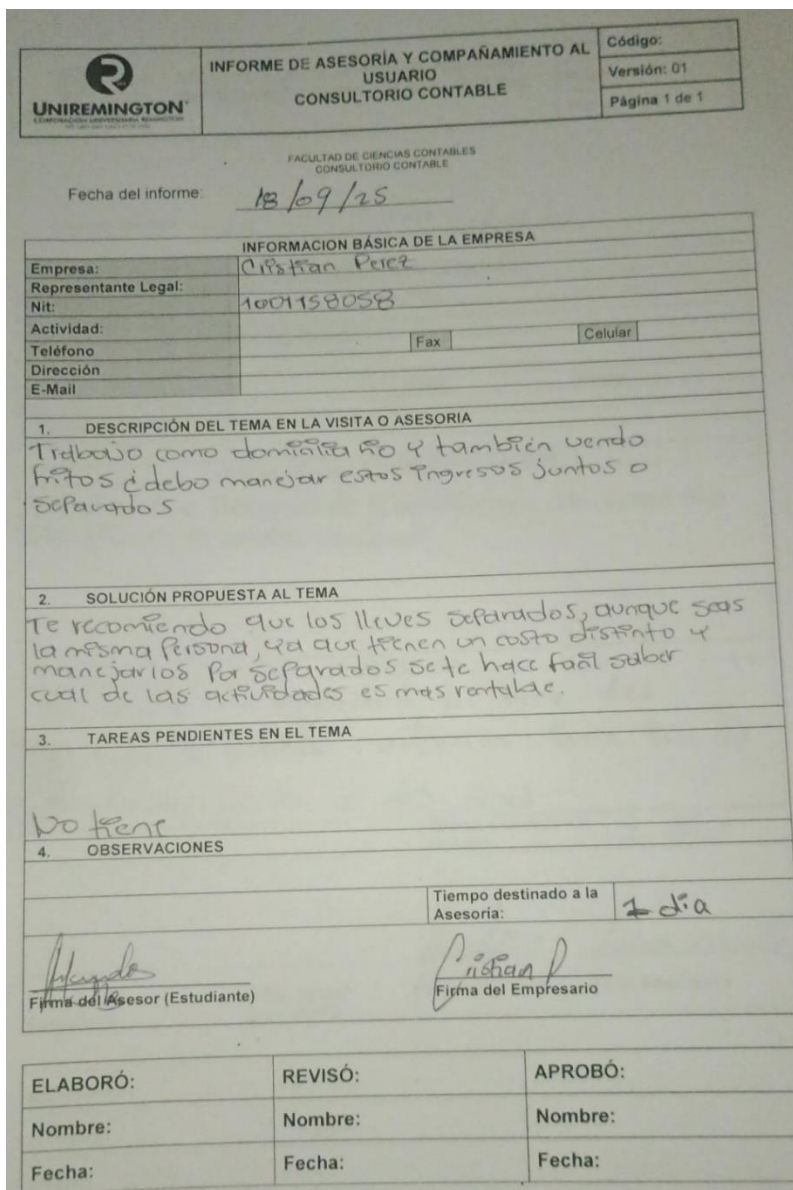 UNIREMINGTON
CORPORACIÓN UNIVERSITARIA REMINGTON
INFORME DE ASESORÍA Y COMPAÑAMIENTO AL
USUARIO
CONSULTORIO CONTABLE
Código:
Versión: 01
Página 1 de 1
FACULTAD DE CIENCIAS CONTABLES
CONSULTORIO CONTABLE
Fecha del informe: 18/09/25
INFORMACION BÁSICA DE LA EMPRESA
Empresa: Cristian Perez
Representante Legal:
Nit: 1001158058
Actividad:
Teléfono Fax Celular
Dirección
E-Mail
1. DESCRIPCIÓN DEL TEMA EN LA VISITA O ASESORIA
Trabajo como domiciliario y también vendo
fritos ¿debo manejar estos ingresos juntos o
separados
2. SOLUCIÓN PROPUESTA AL TEMA
Te recomiendo que los lleves separados, aunque seas
la misma persona, ya que tienen un costo distinto y
manejarlos por separados se te hace facil saber
cual de las actividades es mas rentable.
3. TAREAS PENDIENTES EN EL TEMA
No tiene
4. OBSERVACIONES
Tiempo destinado a la
Asesoria: 1 dia
Cristian P
Firma del Asesor (Estudiante) Firma del Empresario
ELABORÓ: REVISÓ: APROBÓ:
Nombre: Nombre: Nombre:
Fecha: Fecha: Fecha: